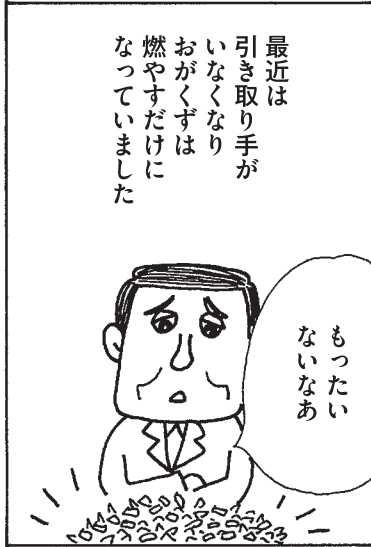 最近は
引き取り手が
いなくなり
おがくずは
燃やすだけに
なっていました
もったい
ないなあ